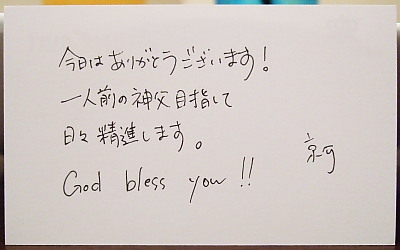 今日はありがとうございます!
一人前の神父目指して
日々精進します。
God bless you!!